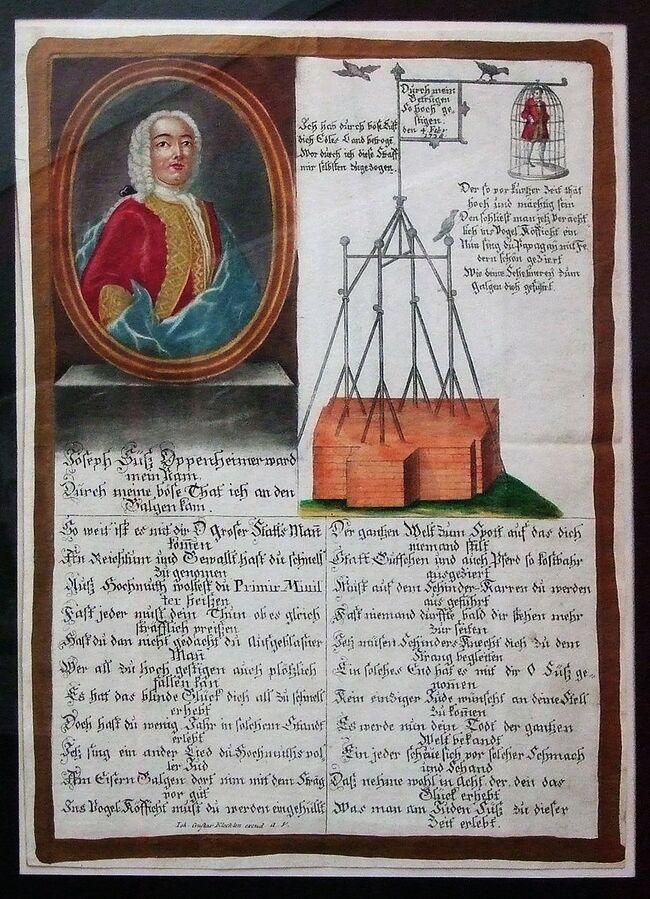 Durch mein
Betrügen
So hoch ge-
stigen.
den 4. Febr.
1738
Ich hab durch böse List
dich Edles Land betrogē
Wor durch ich diese Straff
mir selbsten zugezogen.
Der so vor kurtzer Zeit that
hoch und mächtig sein
Den schliest man jetz veracht
lich ins Vogel Kofficht ein
Nun sing du Papagay mit Fe
dern schön geziert
Wie deine Lehr zum
Galgen dich geführt.
Joseph Süß Oppenheimer ward
mein Nam.
Durch meine böse That ich an den
Galgen kam.
So weit ist es mit dir O groser Staats Mañ
kom̄en
An Reichthum und Gewallt hast du schnell
zu genomen
Auß Hochmuth woltest du Primir Minis
ter heißen
Fast jeder must dein Thun ob es gleich
sträfflich preißen
Hast du dan nicht gedacht du Aufgeblaßner
Mañ
Wer all zu hoch gestigen auch plötzlich
fallen kan
Es hat das blinde Glück dich all zu schnell
erhebt
Doch hast du wenig Jahr in solchem Standt
erlebt
Jetz sing ein ander Lied du Hochmuths vol
ler Jud
Am Eisern Galgen dort nim mit dem Käfig
vor gut
Ins Vogel Kofficht must du werden eingehüllt
Der gantzen Welt zum Spott auf das dich
niemand stilt
Statt Gutschen und auch Pferd so kostbahr
ausgeziert
Must auf dem Schinder-Karren du werden
aus geführt
Fast niemand durffte bald dir stehen mehr
zur seiten
Jetz müsen Schinders Knecht dich zu dem
Strang begleiten
Ein solches End hat es mit dir O Süß ge-
nom̄en
Kein eintziger Jude wünscht an deine Stell
zu kom̄en
Es werde nun dein Todt der gantzen
Welt bekandt
Ein jeder scheue sich vor solcher Schmach
und Schand
Daß nehme wohl in Acht der den das
Glück erhebt
Was man am Juden Süß zu dieser
Zeit erlebt.
Joh. Gustav excud. A. V.